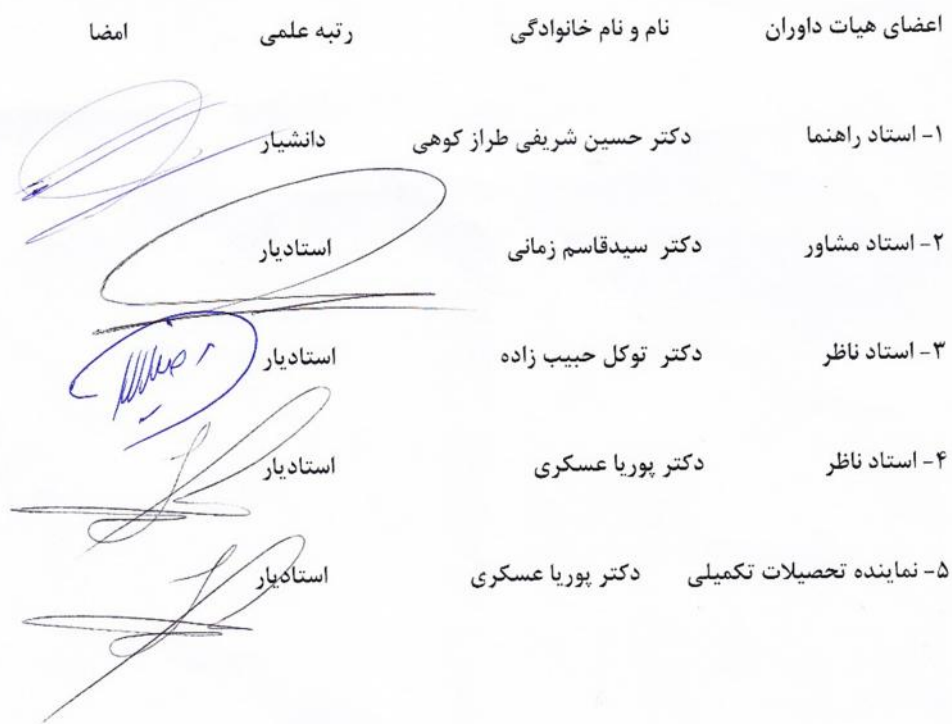 اعضای هیات داوران نام و نام خانوادگی رتبه علمی امضا
۱- استاد راهنما دکتر حسین شریفی طراز کوهی دانشیار
۲- استاد مشاور دکتر سیدقاسم زمانی استادیار
۳- استاد ناظر دکتر توکل حبیب زاده استادیار
۴- استاد ناظر دکتر پوریا عسکری استادیار
۵- نماینده تحصیلات تکمیلی دکتر پوریا عسکری استادیار